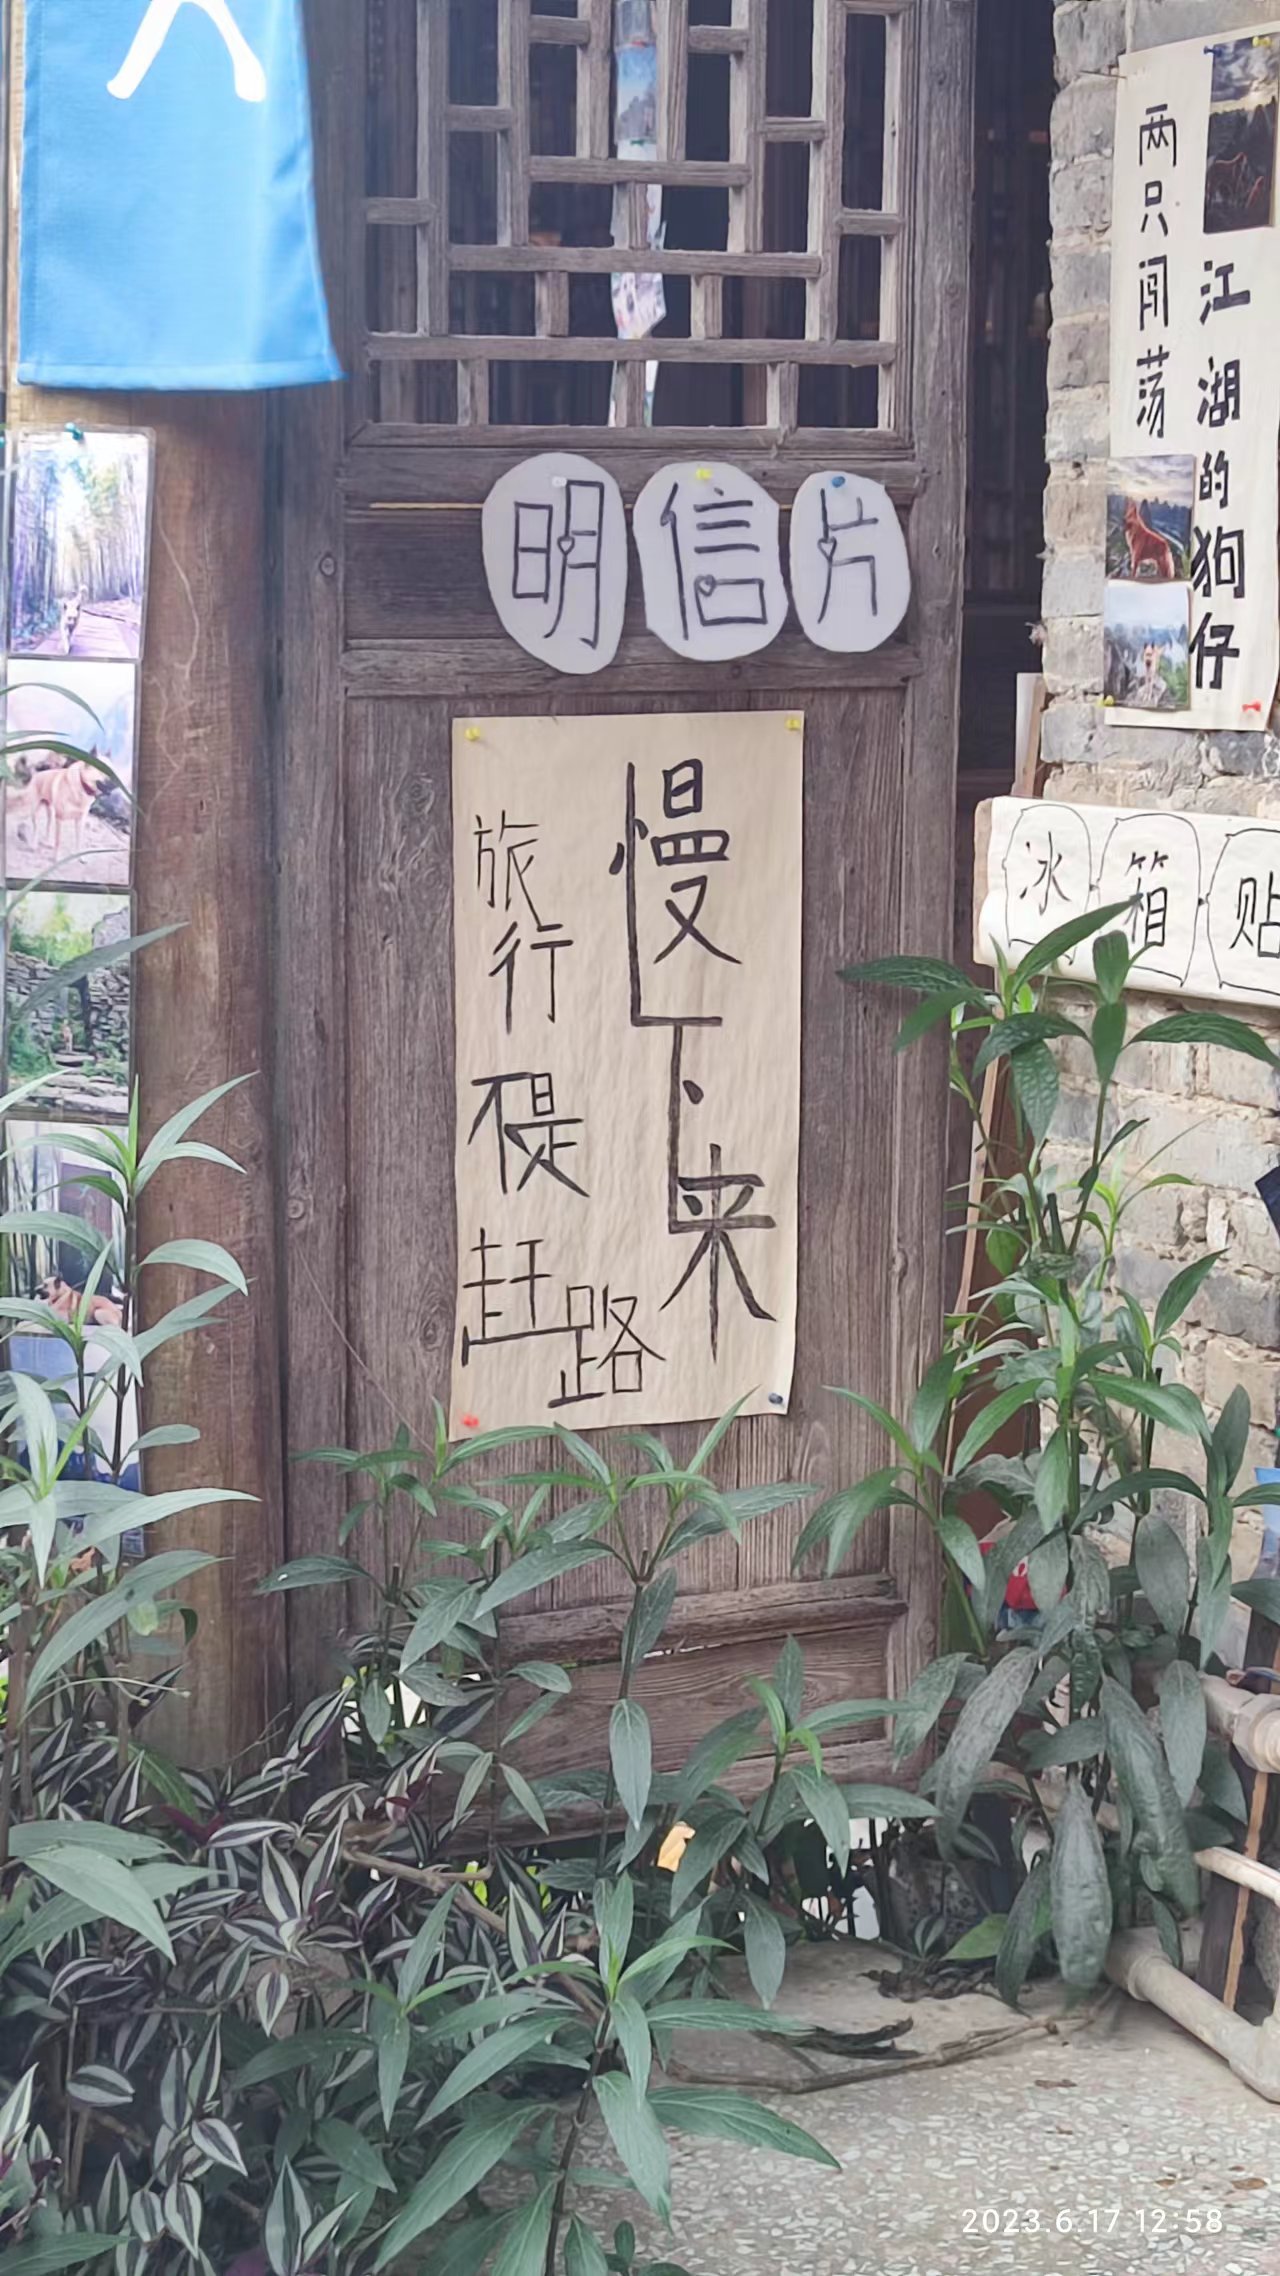 明信片
慢下来
旅行不是赶路
两只闯荡
江湖的狗仔
冰箱贴
2023.6.17 12:58